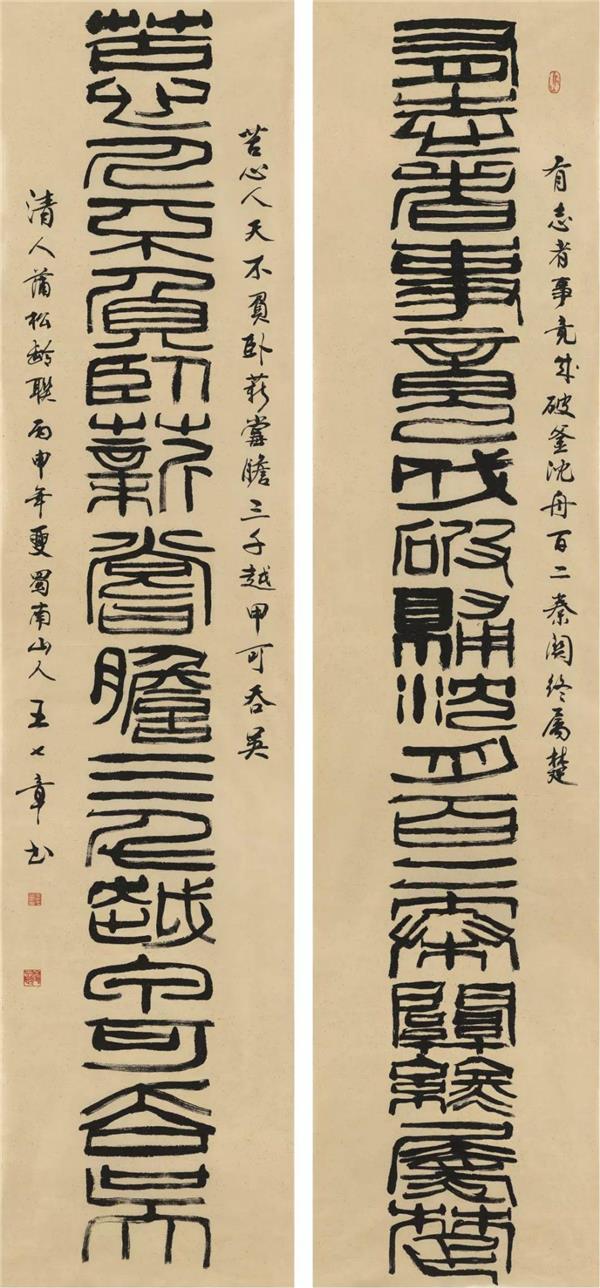 有志者事竟成破釜沈舟百二秦関终属楚
有志者事竟成破釜沈舟百二秦關終屬楚
苦心人天不負卧薪嘗膽三千越甲可吞吳
苦心人天不負卧薪嘗膽三千越甲可吞吳
清人蒲松齡联丙申年夏蜀南山人王七章书